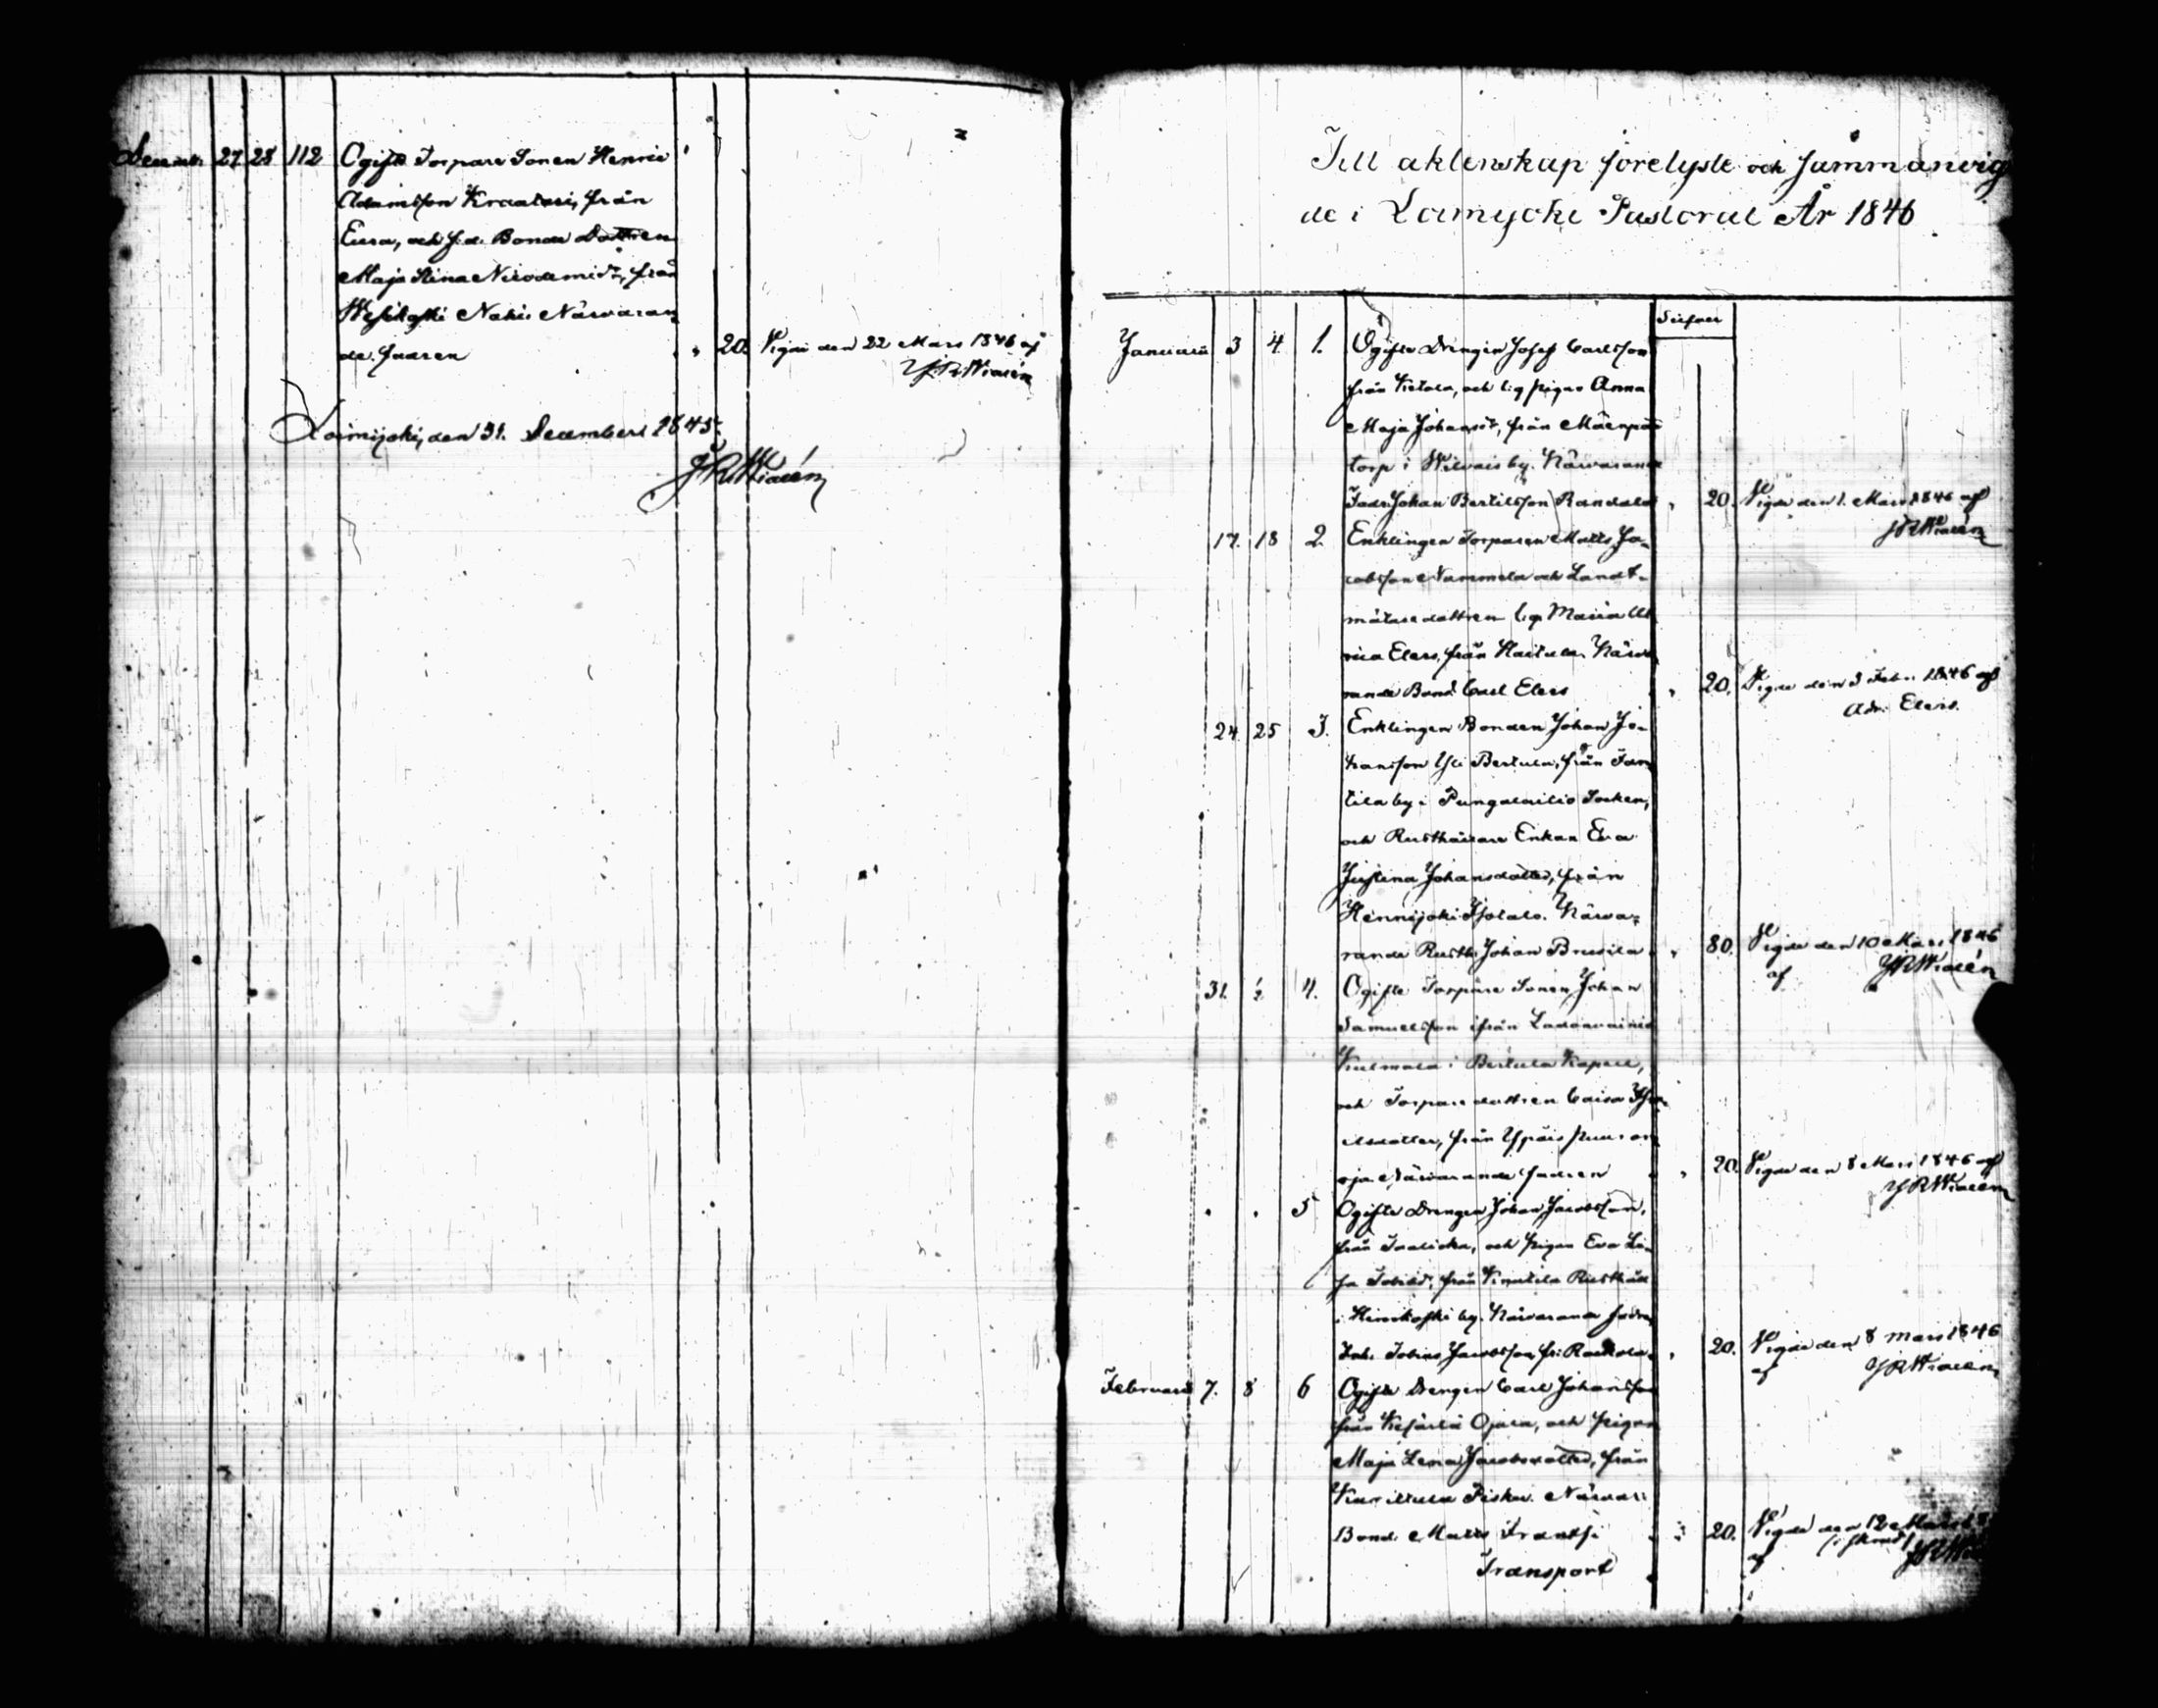 Decemb. 27 28 112 Ogifte Torpare Sonen Henric
Adamsson Kraatari, från
Eura, och f.d. Bonde Dottren
Maja Stina Nicodemidr, från
Wesikoski Nahi. Närvaran-
de. fadren " 20. Vigde den 22 Mars 1846 af
J.R. Widén
Loimijoki, den 31. December 1845.
J.R. Widén
Till äktenskap förelyste och sammanvig
de i Loimijoki Pastorat År 1846
Silfver
Januarii 3 4 1. Ogifte Drengen Josef Carlsson
från Kietola, och lig pigan Anna
Maja Johansdr, från Mäenpää
torp i Wilvais by. Närvarande
Fadr. Johan Bertilsson Randala " 20. Vigde den 1. Mars 1846 af
J.R. Widén
17. 18 2. Enklingen Torparen Matts Ja-
cobsson Nummela och Landt-
mätaredottren lig. Maria Ul
rica Elers, från Haitula. Närva
rande Bond. Carl Elers " 20. Vigde den 3 Febr. 1846 af
Adr. Elers.
24 25 3. Enklingen Bonden Johan Jo-
hansson Yli Bertula, från
tila by i Pungalaitio Socken,
och Rusthållare Enkan Eva
Justina Johansdotter, från
Hennijoki Isotalo. Närva-
rande Rusth. Johan Brusila " 80. Vigde den 10 Mars 1846
af J.R. Widén
31. 1/2 4. Ogifte Torpare Sonen Johan
Samuelsson ifrån
Kulmala i Bertula Kapell,
och Torpare dottren Caisa
dotter, från Ypäis
oja Närvarande fadren " 20. Vigde den 8 Mars 1846 af
J.R. Widén
" " 5 Ogifte Drengen Johan Jacobsson,
från och pigan Eva Li-
sa från Rusthåll
i Hirvikoski by. Närvarande fadr.
Tobias Jacobsson " 20. Vigde den 8 Mars 1846
af J.R. Widén
Februarii 7. 8 6 Ogifte Drengen Carl Johansson
från Kojärvi Ojala, och pigan
Maja Lena Jacobsdotter, från
Närvar:
Bond. Matts Frantsi " 20. Vigde den 12 Mars
af J.R. Widén
Transport